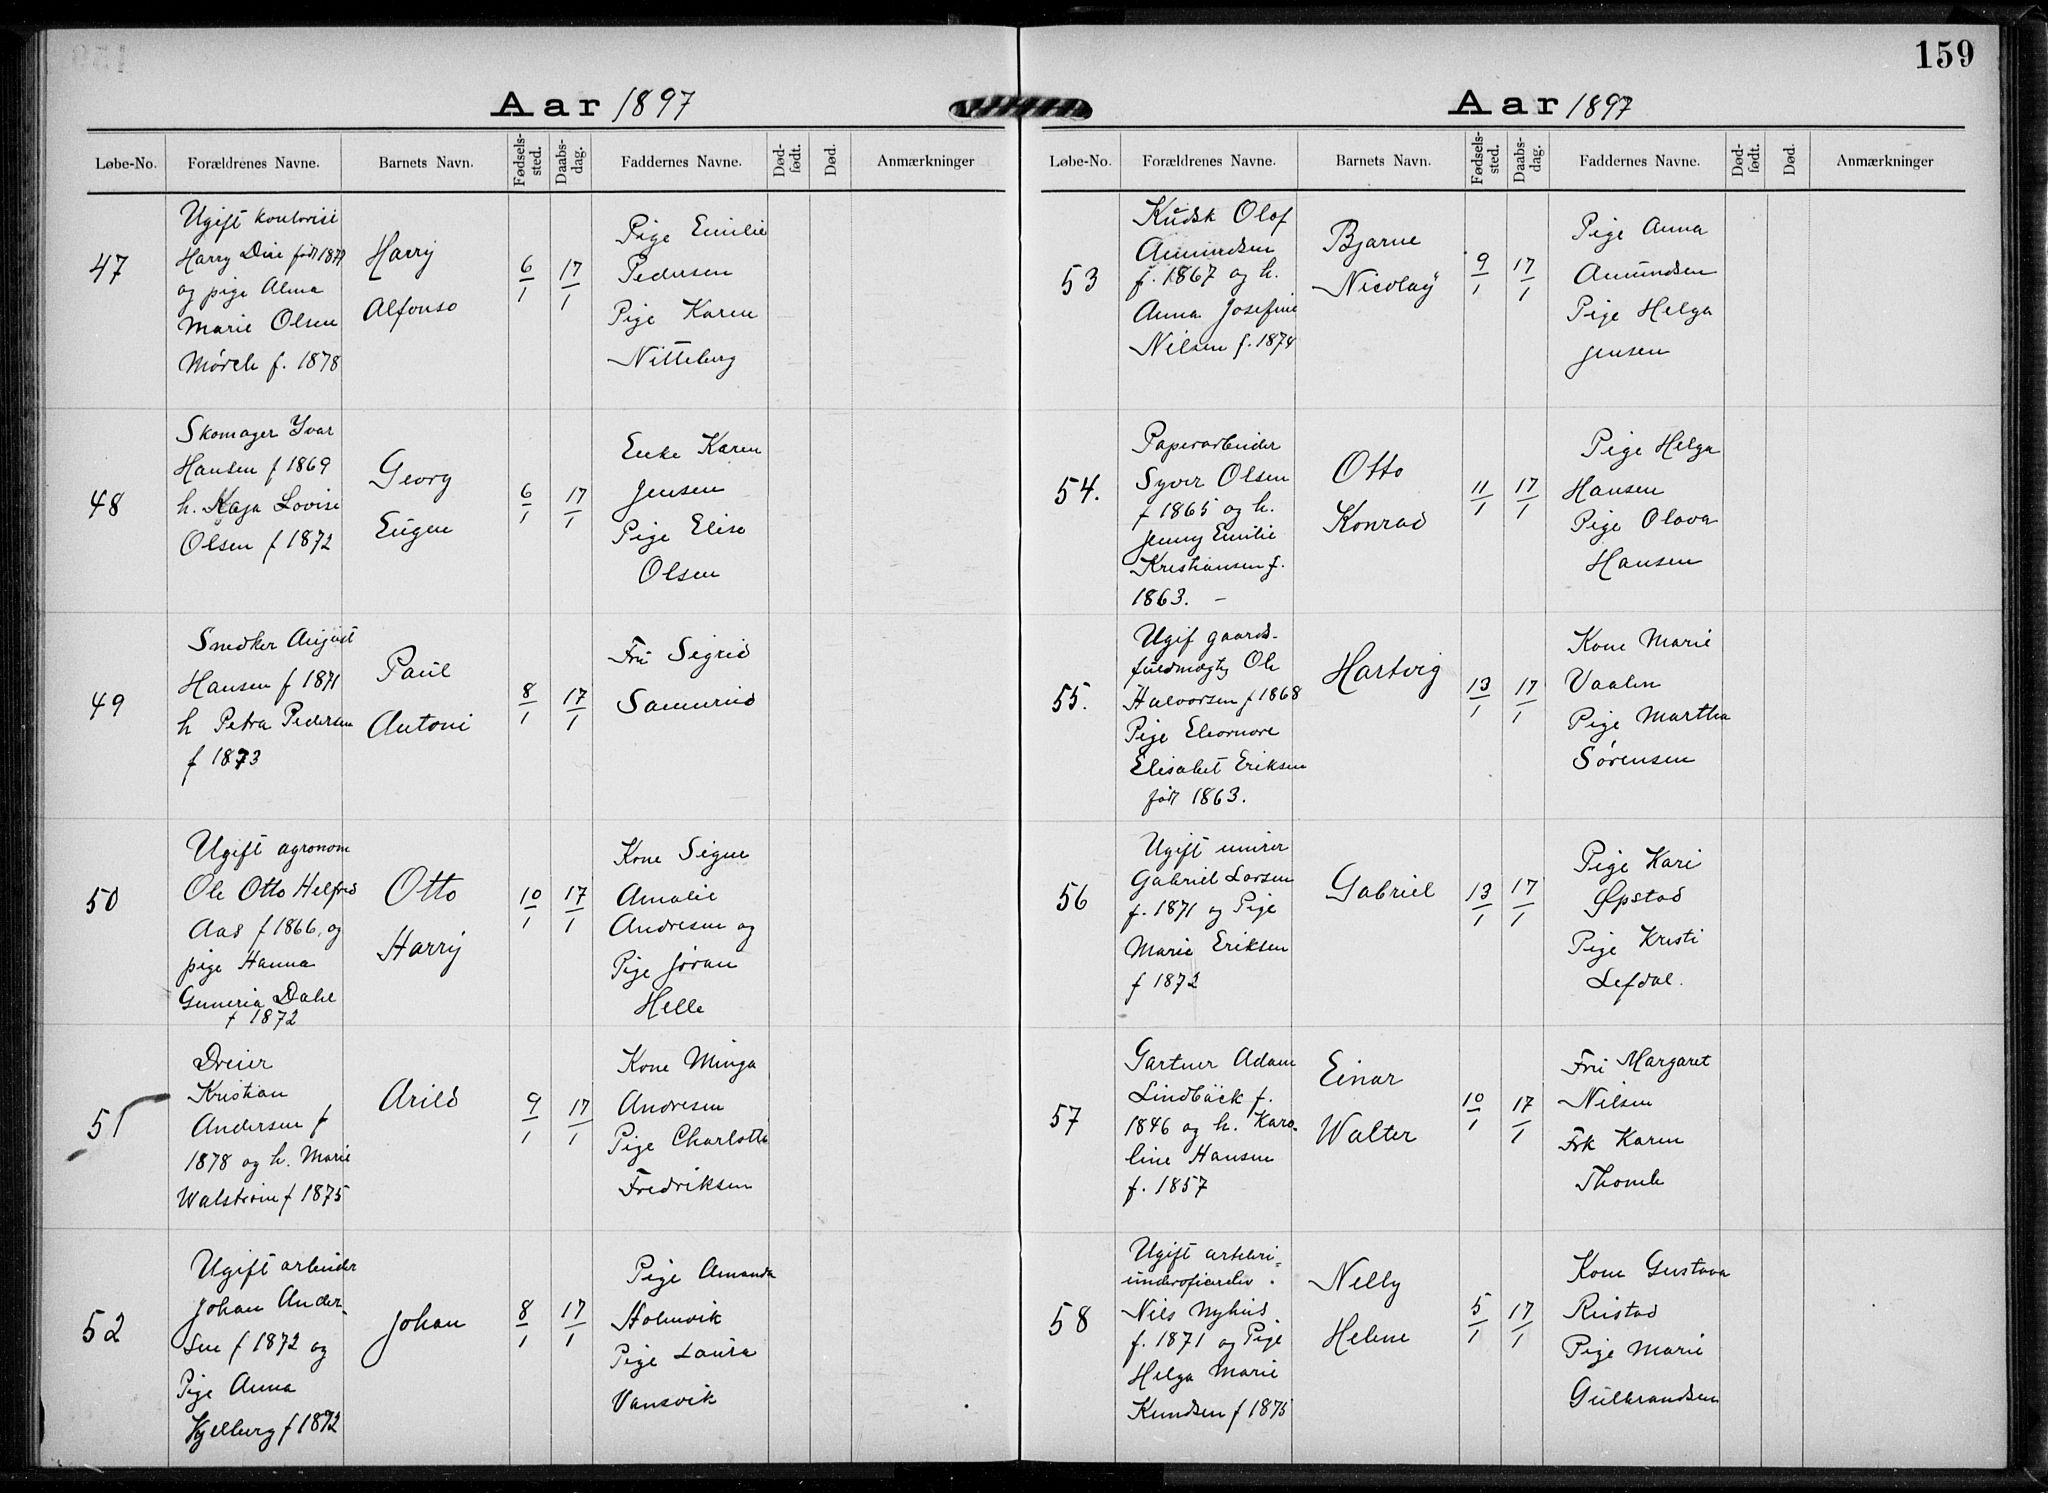 159
Aar 1897
Løbe-No. Forældrenes Navne. Barnets Navn. Fødsels-sted. Daabs-dag. Faddernes Navne. Død-født. Død. Anmærkninger
47
Ugift kontorist
Harry Due født 1877
og pige Alma
Marie Olsen
Mørch f. 1878
Harry
Alfonso
6/1
17/1
Pige Emilie
Pedersen
Pige Karen
Nitteberg
48
Skomager Yvar
Hansen f 1869
h. Kaja Lovise
Olsen f 1872
Georg
Eugen
6/1
17/1
Enke Karen
Jensen
Pige Elise
Olsen
49
Snedker August
Hansen f 1871
h Petra Pedersen
f 1873
Paul
Antoni
8/1
17/1
Fru Sigrid
50
Ugift agronom
Ole Otto Helfred
Aas f 1866, og
pige Hanna
Guneria Dahl
f 1872
Otto
Harry
10/1
17/1
Kone Signe
Amalie
Andresen og
Pige Jøran
Helle
51
Dreier
Kristian
Andersen f
1878 og h. Marie
Walstrøm f 1875
Arild
9/1
17/1
Kone Minga
Andresen
Pige Charlotte
Fredriksen
52
Ugift arbeider
Johan Ander-
sen f 1872 og
Pige Anna
Kjelberg f 1872
Johan
8/1
17/1
Pige Amanda
Holmvik
Pige Laura
Vansvik
Aar 1897
Løbe-No. Forældrenes Navne. Barnets Navn. Fødsels-sted. Daabs-dag. Faddernes Navne. Død-født. Død. Anmærkninger
53
Kudsk Olaf
Amundsen
f. 1867 og h.
Anna Josefine
Nilsen f. 1874
Bjarne
Nicolay
9/1
17/1
Pige Anna
Amundsen
Pige Helga
Jensen
54.
Papirarbeider
Syver Olsen
f 1865 og h.
Jenny Emilie
Kristiansen f.
1863. -
Otto
Konrad
11/1
17/1
Pige Helga
Hansen
Pige Olava
Hansen
55.
Ugif gaards-
fuldmægtig Ole
Halvorsen f 1868
Pige Eleornore
Elisabet Eriksen
født 1863.
Hartvig
13/1
17/1
Kone Marie
Vaalen
Pige Martha
Sørensen
56
Ugift murer
Gabriel Larsen
f. 1871 og Pige
Marie Eriksen
f 1872
Gabriel
13/1
17/1
Pige Kari
Øpstad
Pige Kristi
Lefdal.
57
Gartner Adam
Lindbäck f.
1846 og h. Karo-
line Hansen
f. 1857
Einar
Walter
10/1
17/1
Fru Margaret
Nilsen
Frk Karen
58
Ugift artileri-
Nils Nyhus
f. 1871 og Pige
Helga Marie
Knudsen f 1875
Nelly
Helene
5/1
17/1
Kone Gustava
Rustad
Pige Marie
Gulbrandsen